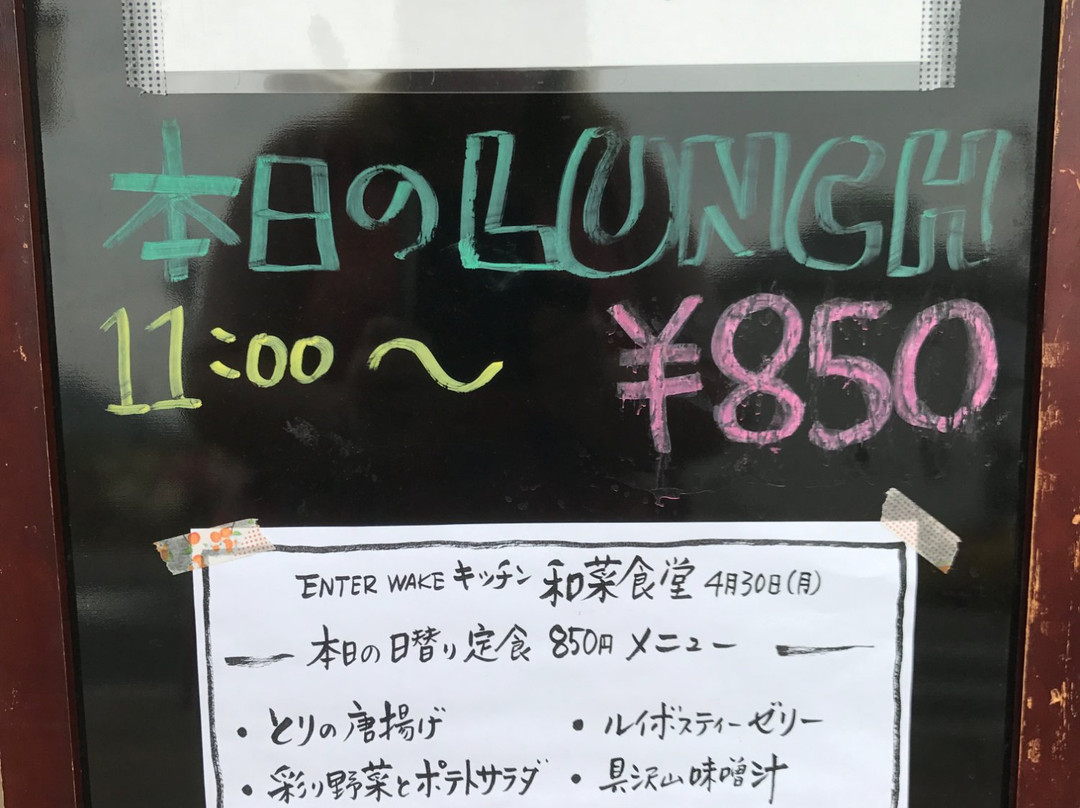 本日のLUNCH
11:00〜 ¥850
ENTER WAKE キッチン 和菜食堂 4月30日(月)
本日の日替り定食 850円 メニュー
・とりの唐揚げ ・ルイボスティーゼリー
・彩り野菜とポテトサラダ ・具沢山味噌汁